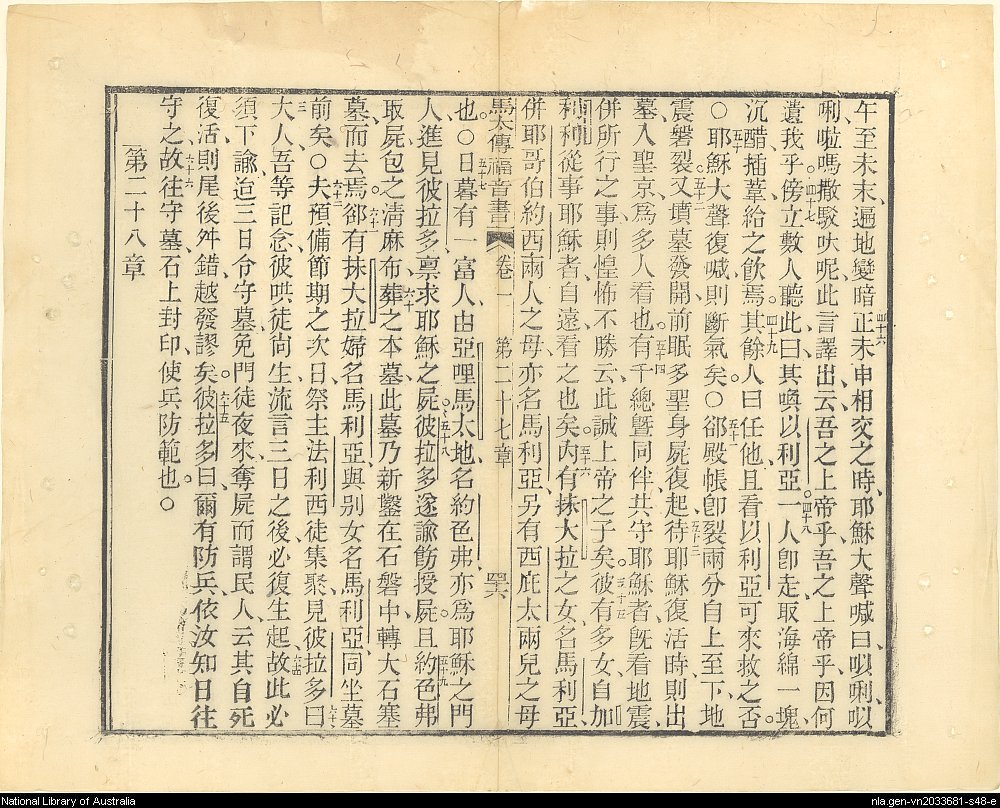 午至未末、遍地變暗正未申相交之時、耶穌大聲喊曰、㕥唎㕥
唎啦嗎撒駁吠呢此言譯出云吾之上帝乎吾之上帝乎因何
遺我乎傍立數人聽此曰其喚以利亞。一人卽走取海綿一塊、
沉醋插葦給之飲焉其餘人曰任他且看以利亞可來救之否。
○耶穌大聲復喊則斷氣矣。○郤殿帳卽裂兩分自上至下、地
震磐裂。又墳墓發開前眠多聖身屍復起待耶穌復活時則出
墓入聖京爲多人看也。有千總暨同伴共守耶穌者旣看地震
併所行之事則惶怖不勝云此誠上帝之子矣。彼有多女自加
利利從事耶穌者自遠看之也。內有抹大拉之女名馬利亞、
併耶哥伯約西兩人之母亦名馬利亞另有西庇太兩兒之母
馬太傳福音書 卷一 第二十七章
也。○日暮有一富人、由亞哩馬太地名約色弗亦爲耶穌之門
人、進見彼拉多稟求耶穌之屍。彼拉多遂諭飭授屍。且約色弗
取屍包之淸麻布、葬之本墓此墓乃新鑿在石磐中轉大石塞
墓而去焉。郤有抹大拉婦名馬利亞與别女名馬利亞同坐墓
前矣○夫預備節期之次日祭主法利西徒集聚見彼拉多曰
大人吾等記念彼哄徒尙生流言三日之後必復生起故此必
須下諭迨三日令守墓免門徒夜來奪屍而謂民人云其自死
復活則尾後舛錯越發謬矣。彼拉多曰爾有防兵依汝知日往
守之故往守墓石上封印使兵防範也。○
第二十八章
四十六
四十七
四十八
四十九
五十
五十一
五十二
五十三
五十四
五十五
五十六
五十七
五十八
五十九
六十
六十一
六十二
六十三
六十四
六十五
六十六
National Library of Australia
nla.gen-vn2033681-s48-e